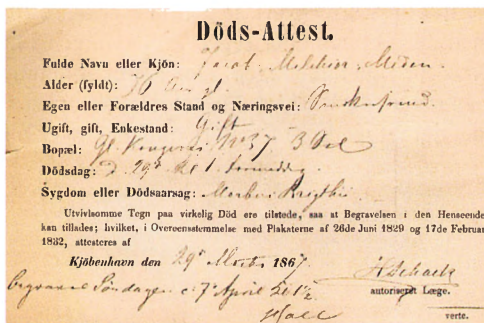 Döds-Attest.
Fulde Navn eller Kjön: Jacob Melchior
Alder (fyldt):
Egen eller Forældres Stand og Næringsvei:
Ugift, gift, Enkestand: Gift
Bopæl: Gl. Kongevei No 37 3 Sal
Dödsdag: d. 29 Kl 1
Sygdom eller Dödsaarsag: Morbus Brightii
Utvivlsomme Tegn paa virkelig Död ere tilstede, saa at Begravelsen i den Henseende
kan tillades; hvilket, i Overeensstemmelse med Plakaterne af 26de Juni 1829 og 17de Februar
1832, attesteres af
Kjöbenhavn den 29 Marts 1867
autoriseret Læge.
begraves Söndagen d. 7 April Kl 1½
verte.